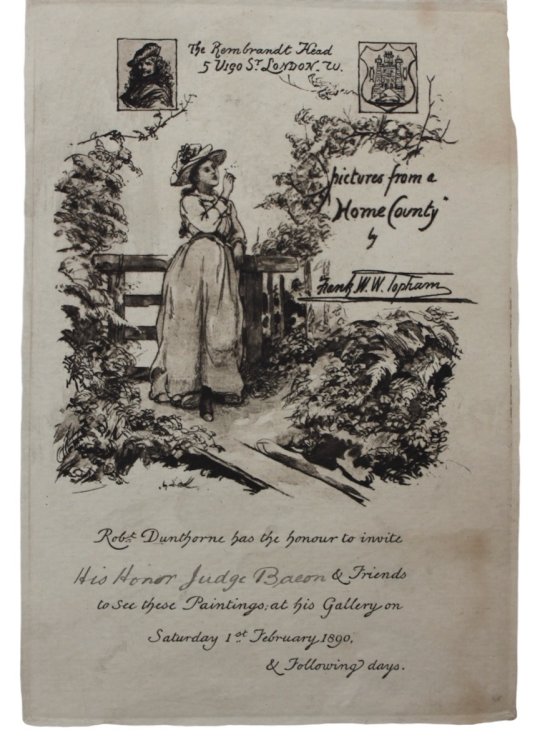 The Rembrandt Head
5 Vigo St. LONDON. W.
"pictures from a
Home County"
by
Frank W. W. Topham
Robt. Dunthorne has the honour to invite
His Honor Judge Bacon & Friends
to see these Paintings; at his Gallery on
Saturday 1st February 1890.
& Following days.